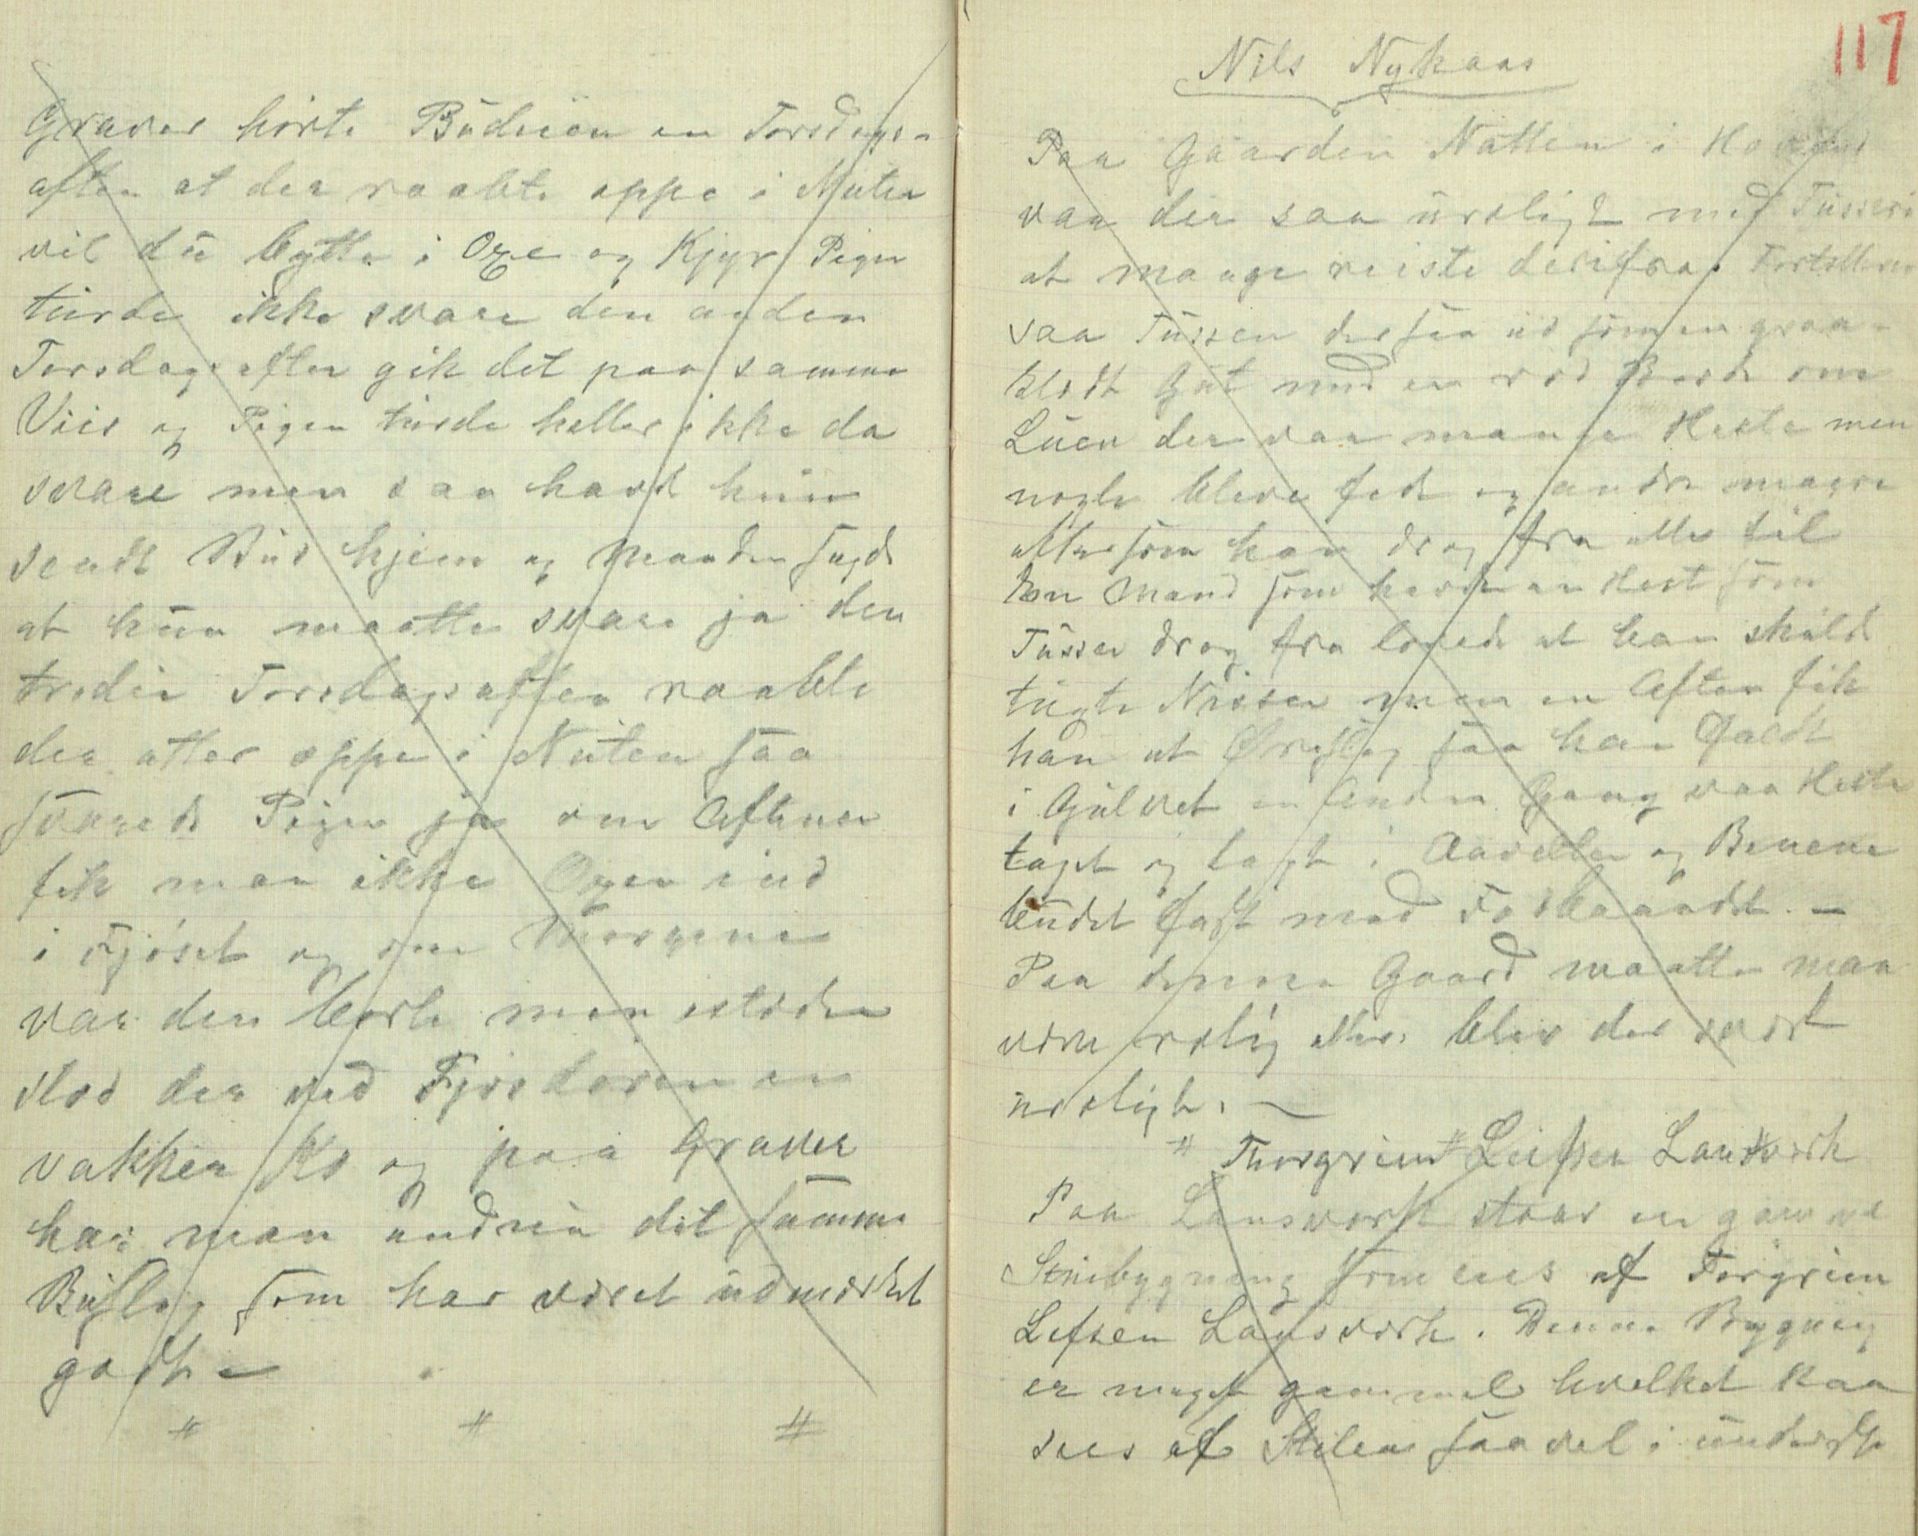 Graver hørte Budeien en Torsdags-
aften at der raabte oppe i Nuten
vil du bytte i Oxe og Kjyr Pigen
turde ikke svare den anden
Torsdagsaften gik det paa samme
Viis og Pigen turde heller ikke da
svare men saa havde hun
sendt Bud hjem og Manden sagde
at hun maatte svare ja den
tredie Torsdagsaften raabte
der atter oppe i Nuten saa
svarede Pigen ja om Aftenen
fik man ikke Oxen ind
i Fjøset og om Morgenen
var den borte men isteden
stod der ved Fjøsdøren en
vakker Ko og paa Graver
har man endnu det samme
Buslag som har været udmærket
godt –
" " "
117
Nils Nykaas
Paa Gaarden Natten i
var der saa uroligt med Tusseri
at mange reiste derifra. Fortelleren
saa Tussen der saa ud som en graa-
klædt Gut med en rød Bord om
Luen der var mange Heste men
nogle bleve fede og andre magre
ettersom han drog fra eller til
En Mand som havde en Hest som
Tussen drog fra lovede at han skulde
tugte Nissen men en Aften fik
han et Ørefig saa han faldt
i Gulvet en anden Gang var Hesten
taget og lagt i og Benene
bundet fast med
Paa denne Gaard maatte man
være rolig ellers blev der svært
uroligt. –
" Thorgrim Leifsen Landsverk
Paa Landsverk staar en gammel
Stuebygning som eies af Torgrim
Leifsen Landsverk. Denne Bygning
er meget gammel hvilket kan
sees af Stilen saavel i